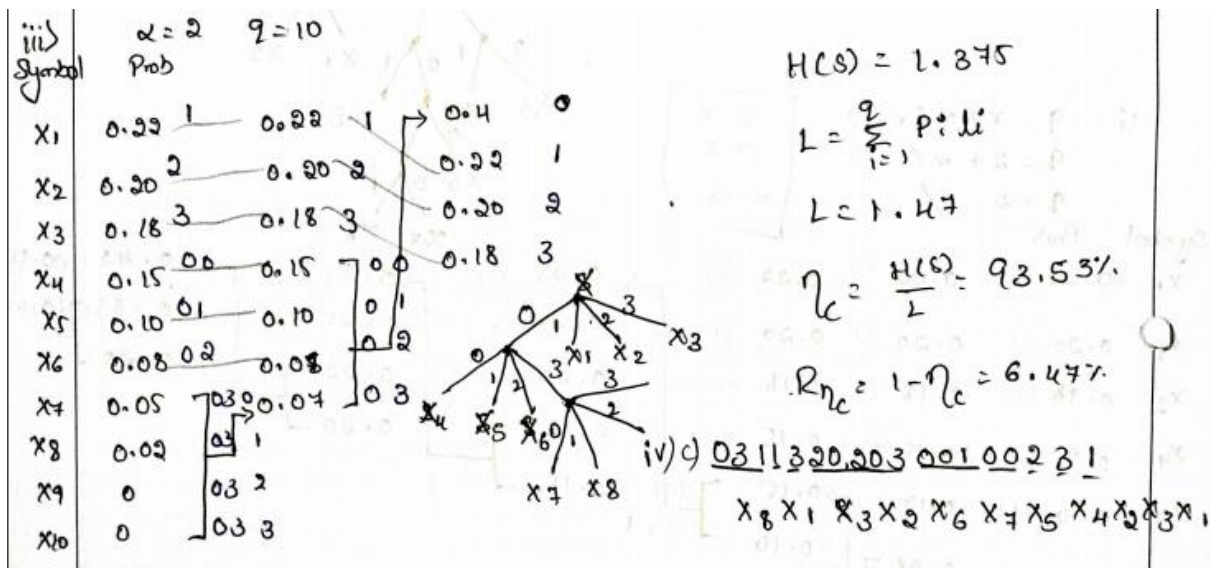 iii) α = 2 q = 10
Symbol Prob
X1 0.22 1 0.22 1 0.4 0
X2 0.20 2 0.20 2 0.22 1
X3 0.18 3 0.18 3 0.20 2
X4 0.15 00 0.15 00 0.18 3
X5 0.10 01 0.10 01
X6 0.08 02 0.08 02
X7 0.05 030 0.07 03
X8 0.02 03 1
X9 0 03 2
X10 0 03 3
0 1 2 3
X1 X2 X3
0 1 2 3
X4 X5 X6
0 1 2 3
X7 X8
H(S) = 1.375
L = q Σ i=1 Pi li
L = 1.47
ηc = H(S) / L = 93.53%
Rηc = 1 - ηc = 6.47%
iv) c) 03 11 3 20.203 001 002 3 1
X8 X1 X3 X2 X6 X7 X5 X4 X2 X3 X1